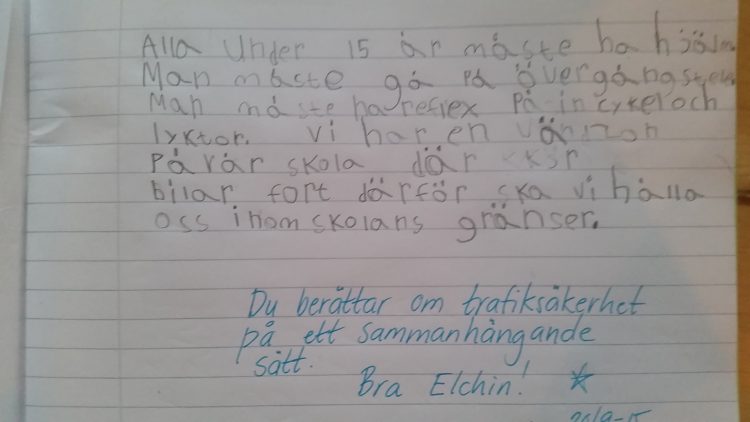 Alla under 15 år måste ha hjälm.
Man måste gå på övergångställe
Man måste ha reflex på in cykel och
lyktor. vi har en vänzon
på vår skola där
bilar fort därför ska vi hålla
oss inom skolans gränser.
Du berättar om trafiksäkerhet
på ett sammanhängande
sätt.
Bra Elchin!